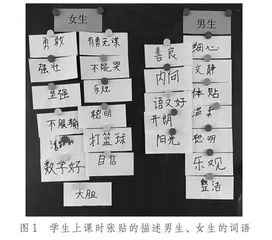 女生
勇敢
有勇无谋
强壮
不脆哭
坚强
乐观
不服输
聪明
打篮球
数学好
自信
大胆
男生
善良
细心
内向
文静
语文好
体贴
开朗
温柔
阳光
聪明
乐观
整洁
图1 学生上课时张贴的描述男生、女生的词语